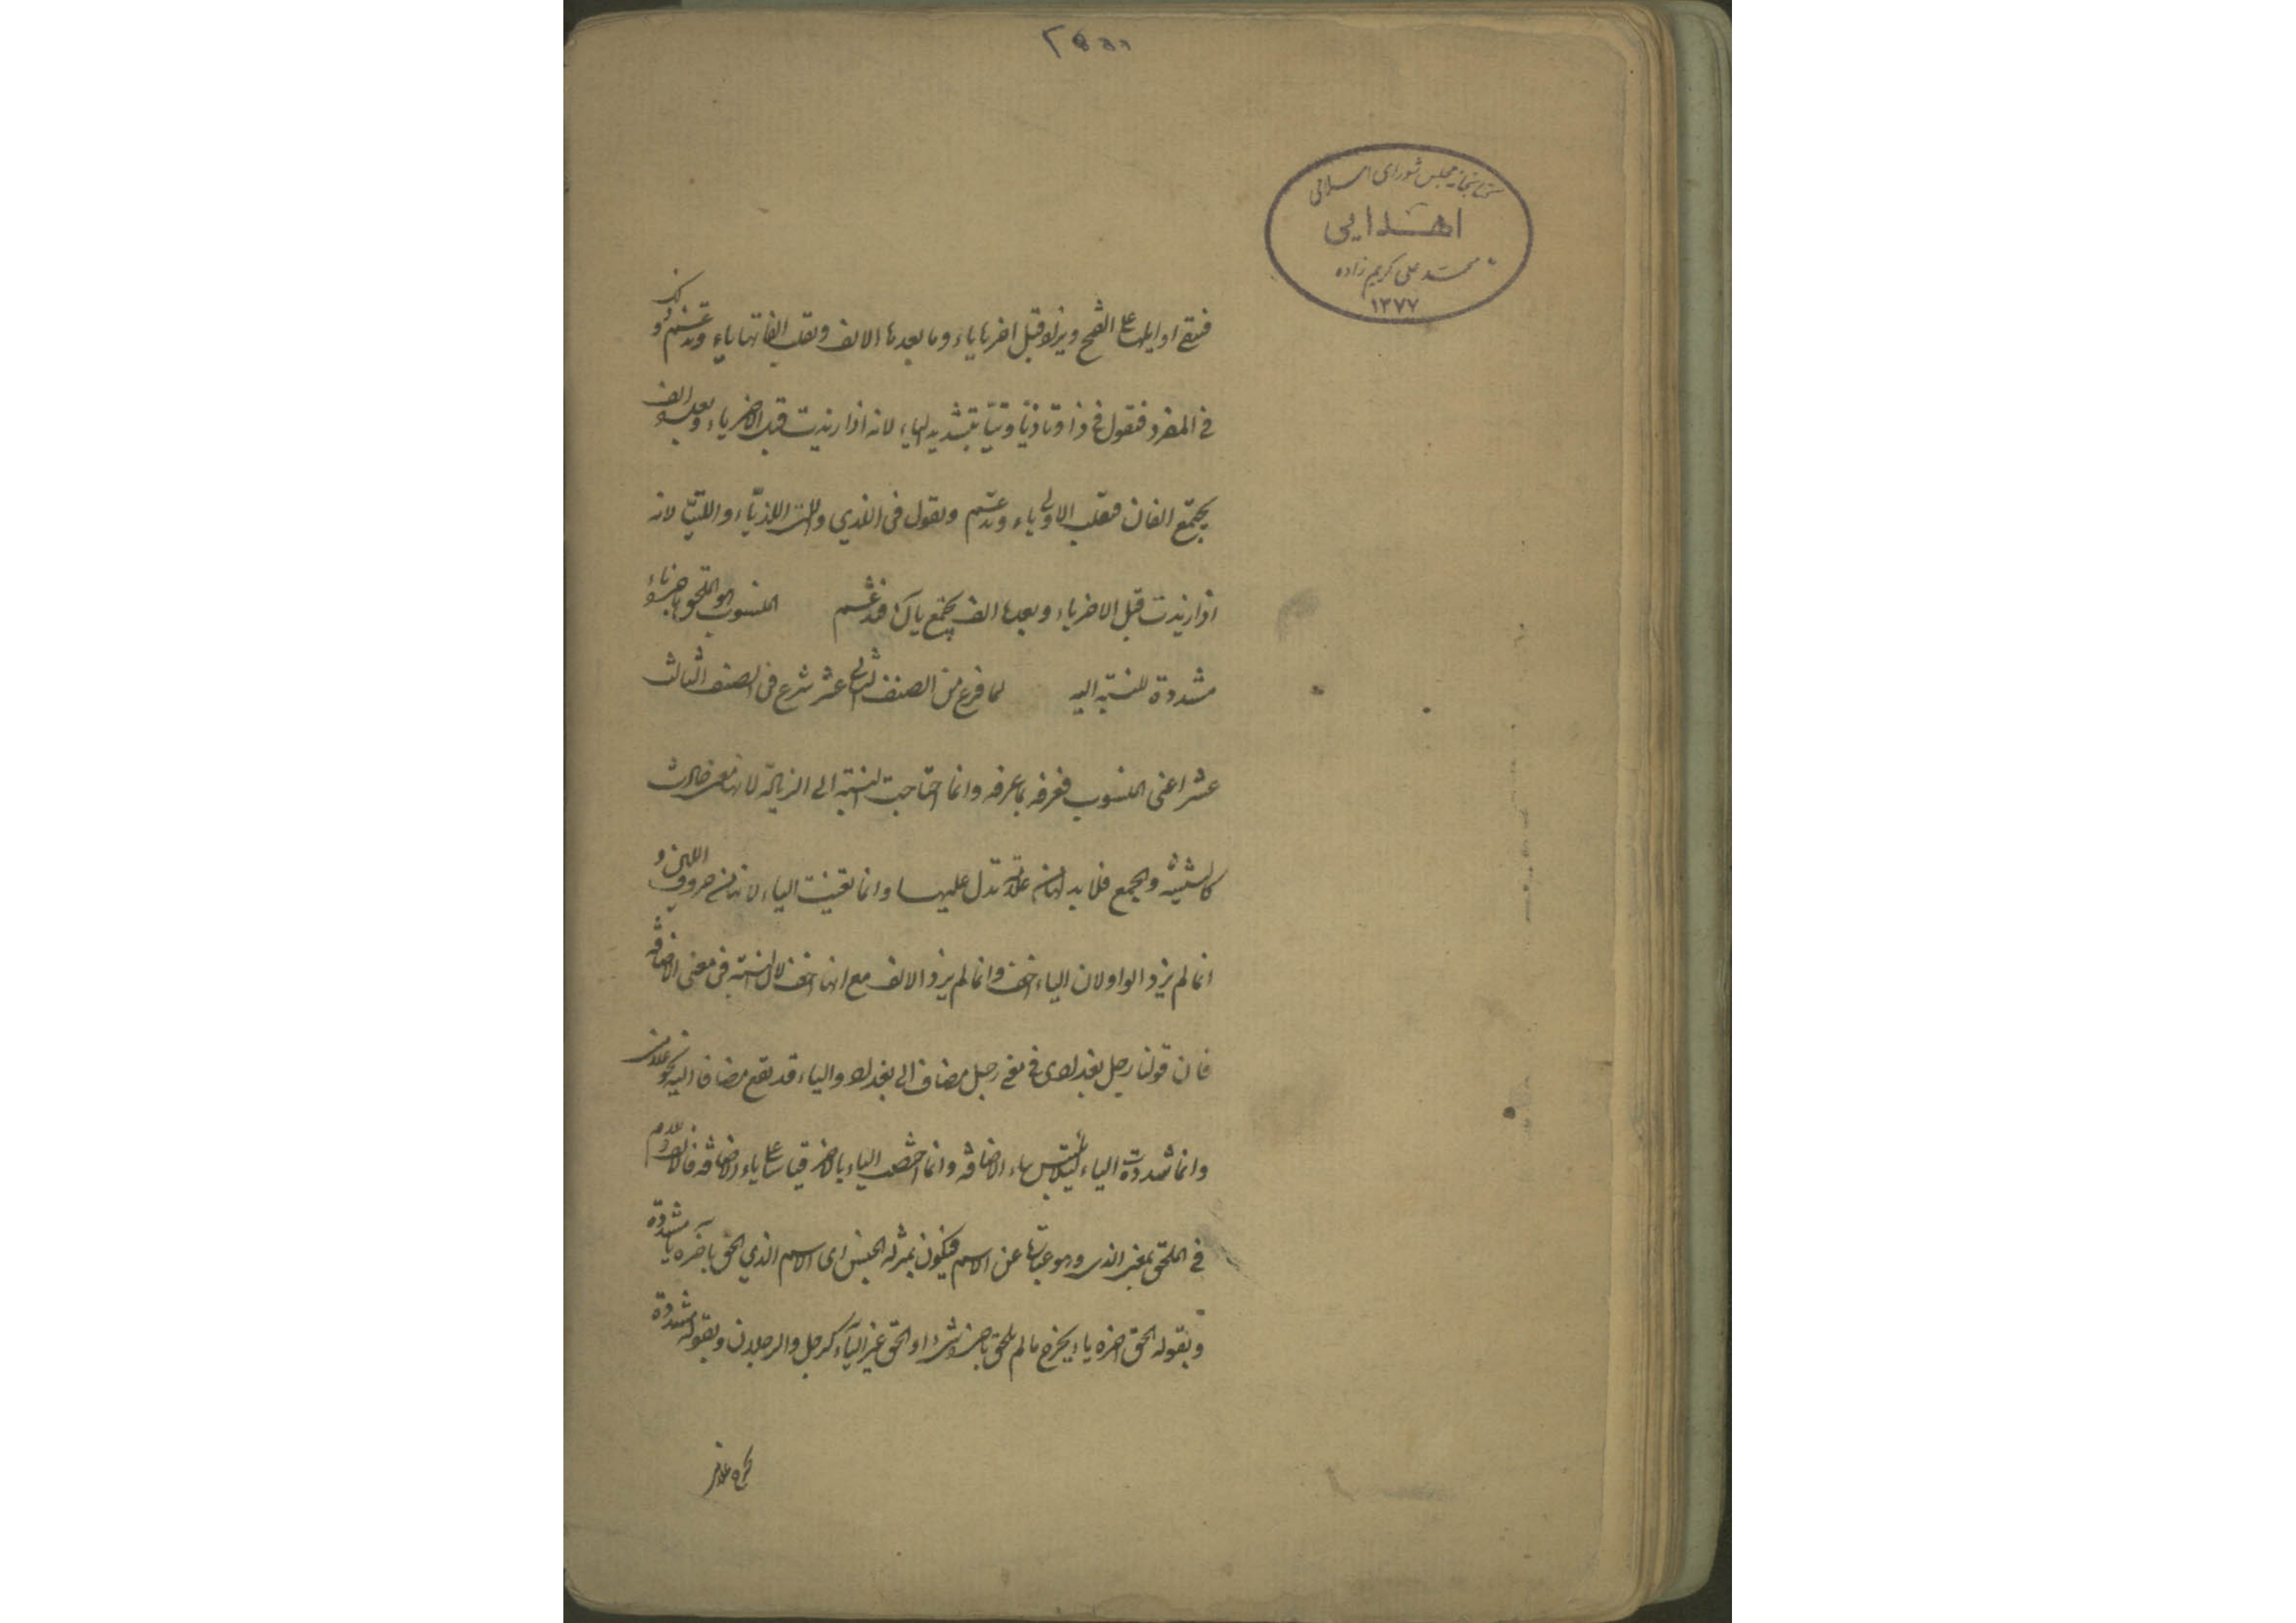 كتابخانه مجلس شورای اسلامی
اهدایی
محمد علی کریم زاده
۱۳۷۷
فتبقى اوايلها على الفتح ويزاد قبل اخرها ياء وما بعدها الالف وتقلب الفاتها ياء وتدغم
في المفرد فتقول في ذا وتا ذيّا وتيّا بتشديد الياء لانه اذا زيدت قبل الاخر ياء وبعده الف
يجتمع الفان فتقلب الاولى ياء وتدغم وتقول في الذي والتي اللذيّا واللتيّا لانه
اذا زيدت قبل الاخر ياء وبعدها الف يجتمع ياآن فتدغم المنسوب هو الملحق باخره ياء
مشددة للنسبة اليه لما فرغ من الصنف الثاني عشر شرع في الصنف الثالث
عشر اعنى المنسوب فعرفه بما عرفه وانما احتاجت النسبة الى الزيادة لانها معنى حادث
كالتثنية والجمع فلا بد لها من علامة تدل عليها وانما تعينت الياء لانها من حروف اللين و
انما لم يزد الواو لان الياء اخف وانما لم يزد الالف مع انها اخف لان النسبة في معنى الاضافة
فان قولنا رجل بغدادى في معنى رجل مضاف الى بغداد والياء قد تقع مضافا اليه نحو غلامى
وانما شددت الياء لئلا يلتبس بياء الاضافة وانما اختص الياء بالاخر قياسا على ياء الاضافة فالالف واللام
في الملحق بمعنى الذى وهو عبارة عن الاسم فيكون بمنزلة الجنس اى الاسم الذي الحق بآخره ياء مشددة
وبقوله الحق اخره ياء يخرج ما لم يلحق باخره شئ او الحق غير الياء كرجل والرجلان وبقوله مشددة